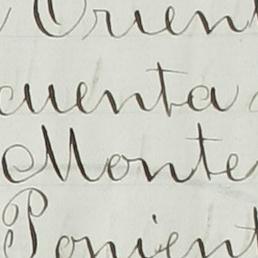 Orient
cuenta
Monte
Ponient